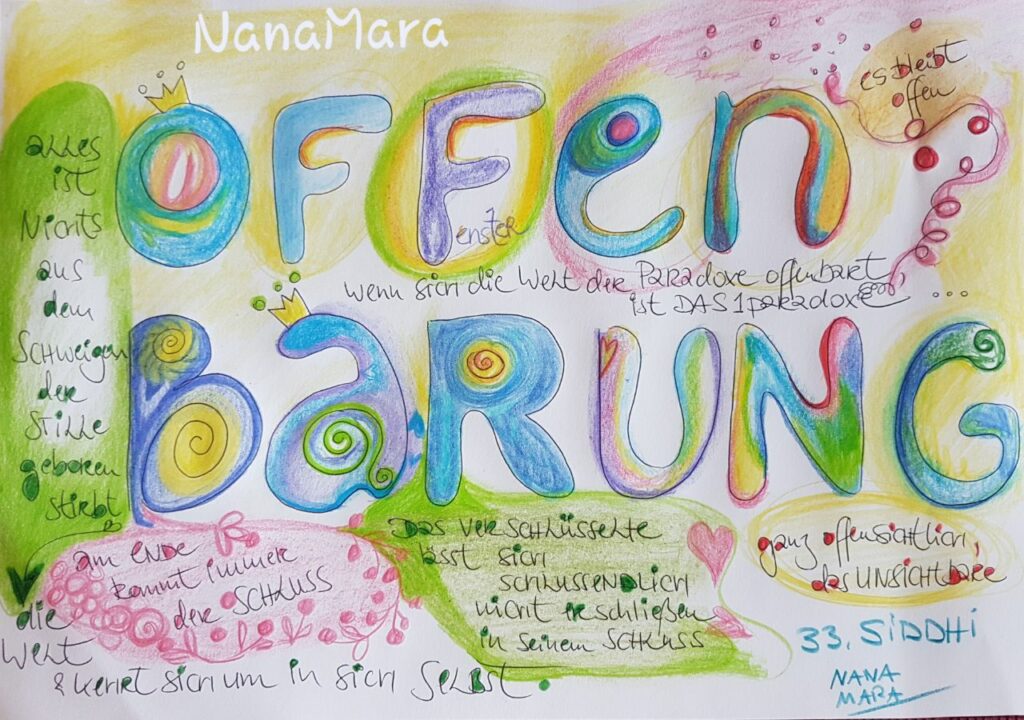 NanaMara
OFFEn
es bleibt
offen
Fenster
wenn sich die Welt der Paradoxe offenbart,
ist DAS 1 paradoxie ...
BARUNG
alles
ist
Nichts
aus
dem
SCHWeigen
der
STILLe
geboren
stirbt
am ENDe
kommt immer
der SCHLUSS
Das VerSCHLÜSSeLte
lässt sich
schlussenDLich
nicht erschließen
in seinem SCHLUSS
ganz offensichtlich,
das UNSICHTbare
die
Welt
& kehrt sich um in sich Selbst.
33. SIDDHI
NANA
MARA